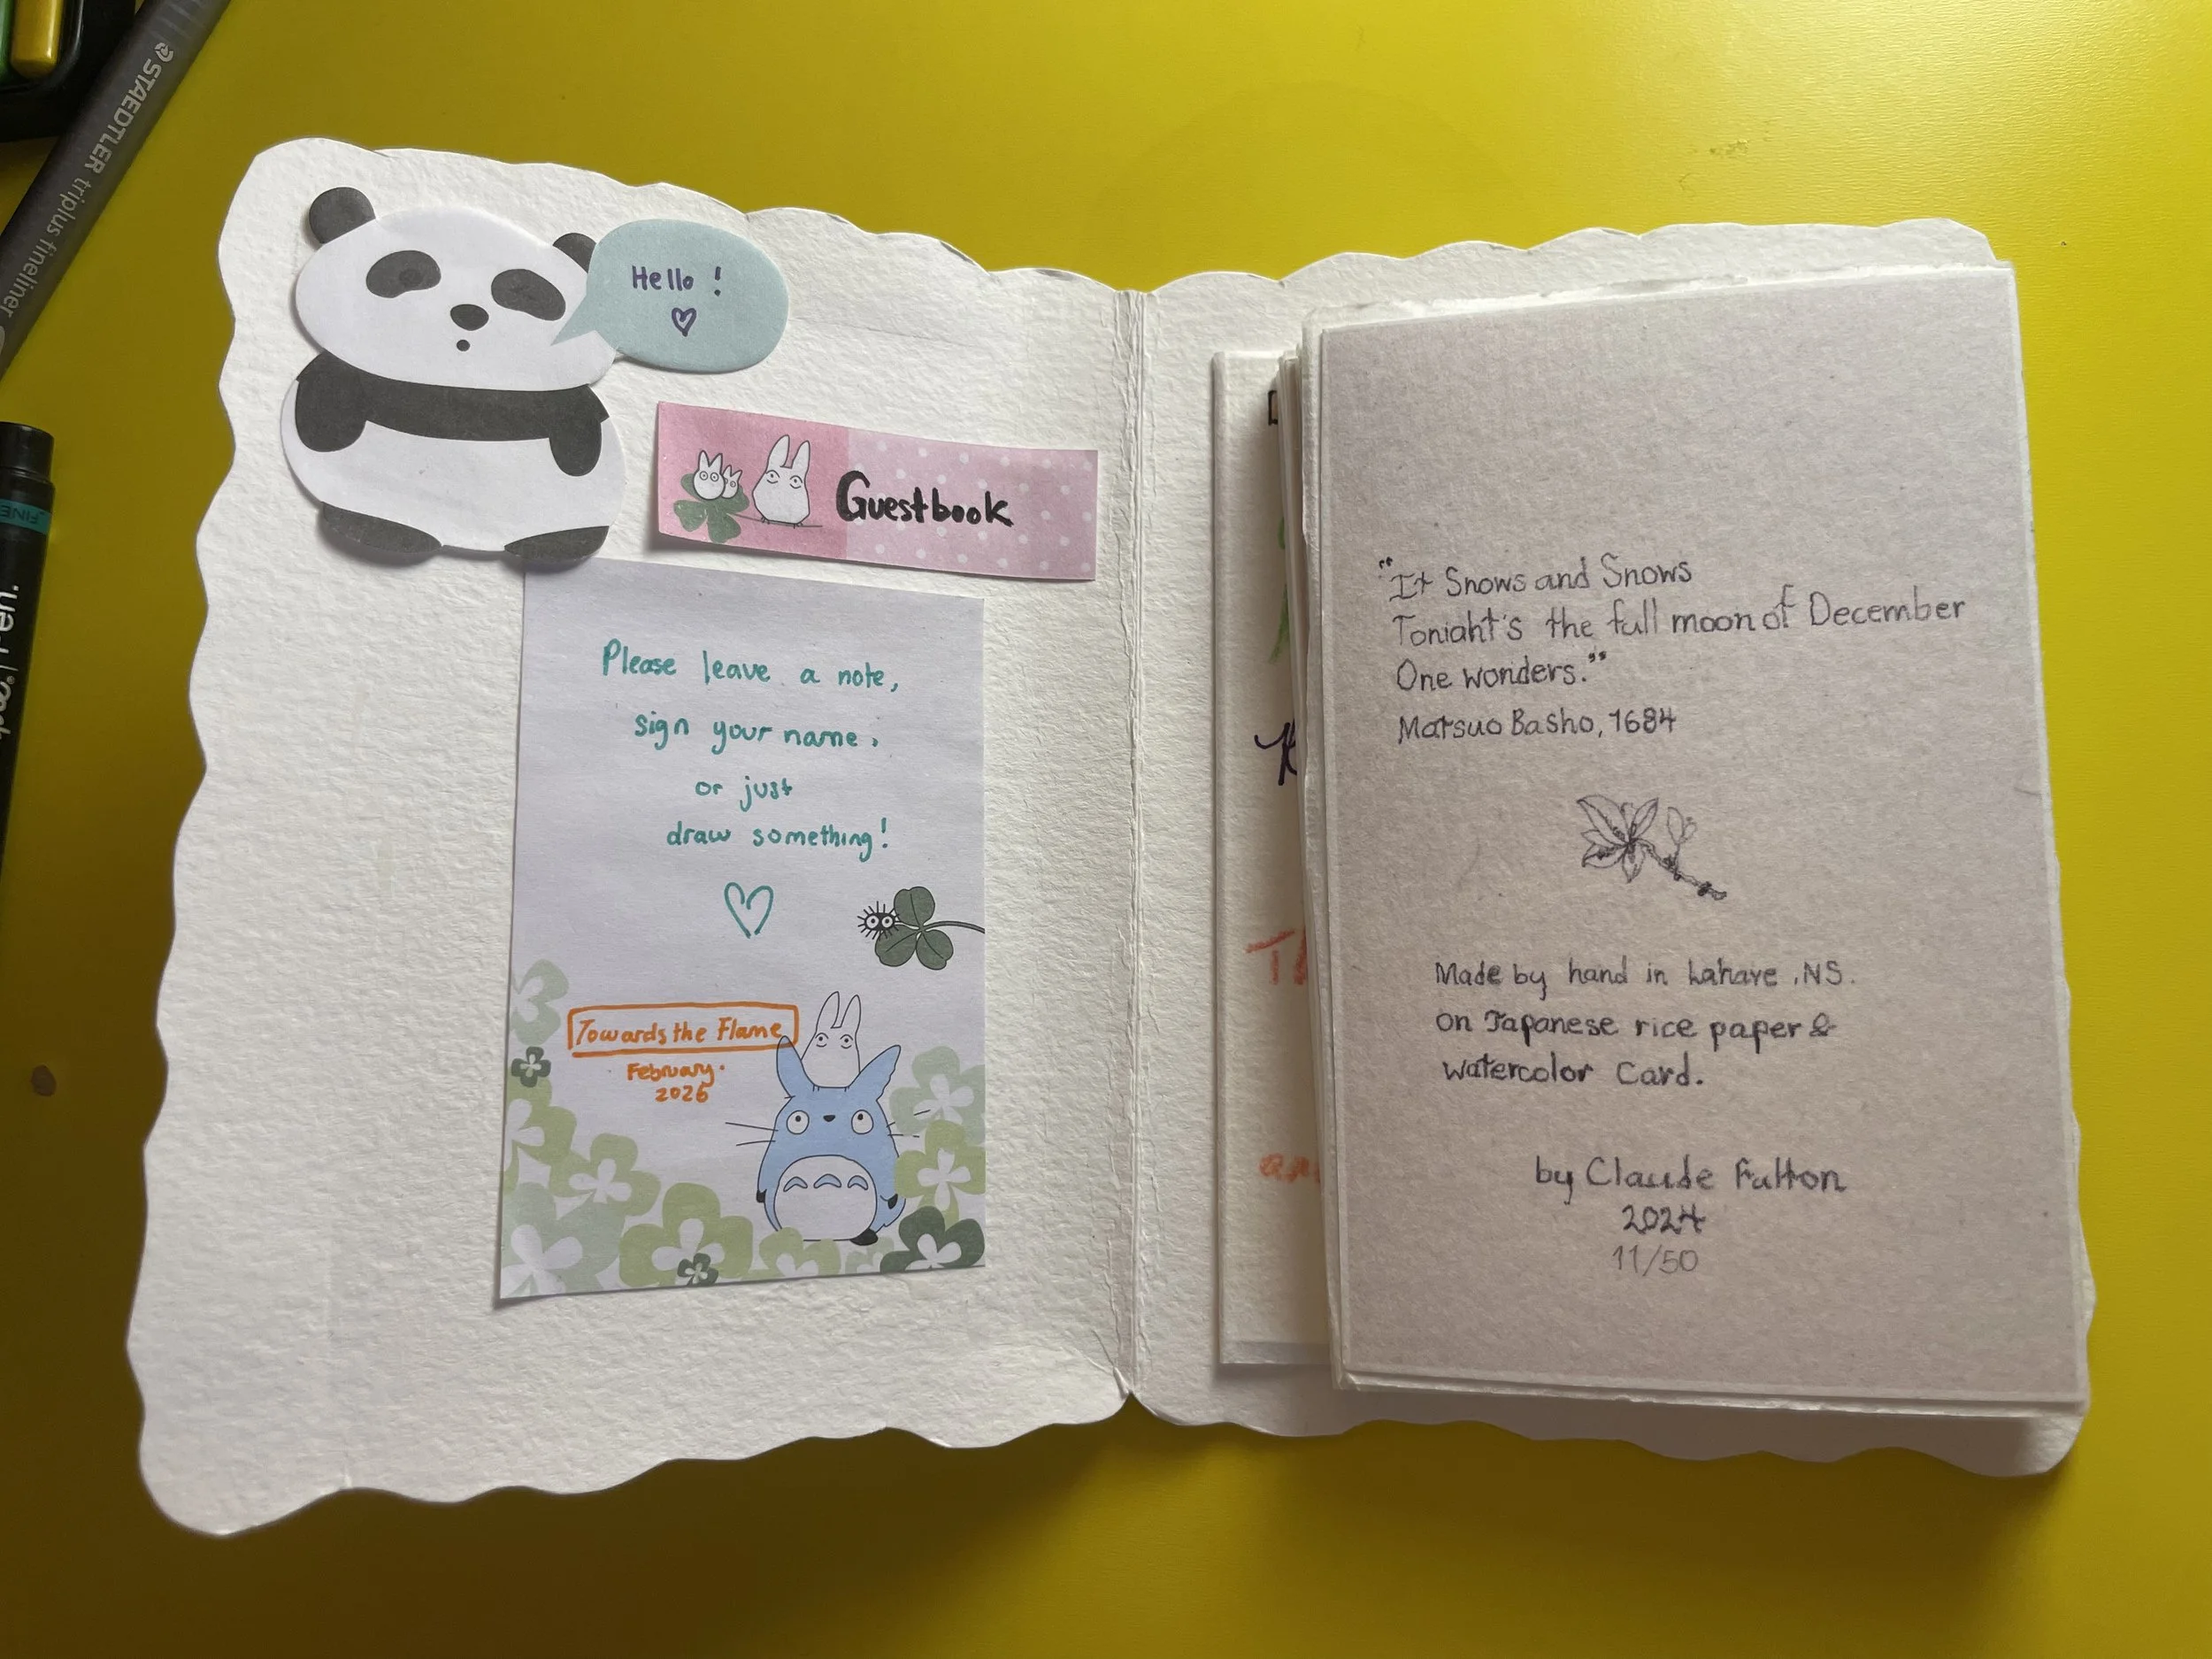 STAEDTLER triplus fineliner
Hello !
Guestbook
Please leave a note,
sign your name,
or just
draw something!
Towards the Flame
February
2026
"It Snows and Snows
Tonight's the full moon of December
One wonders."
Matsuo Basho, 1684
Made by hand in Lahave, NS.
on Japanese rice paper &
watercolor Card.
by Claude Fulton
2024
11/50